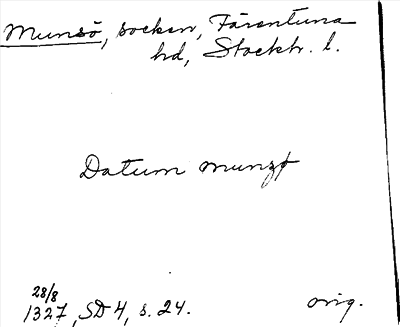 Munsö, socken, Färentuna
hd, Stockh. l.
Datum munzø
28/8
1327, SD 4, s. 24. orig.